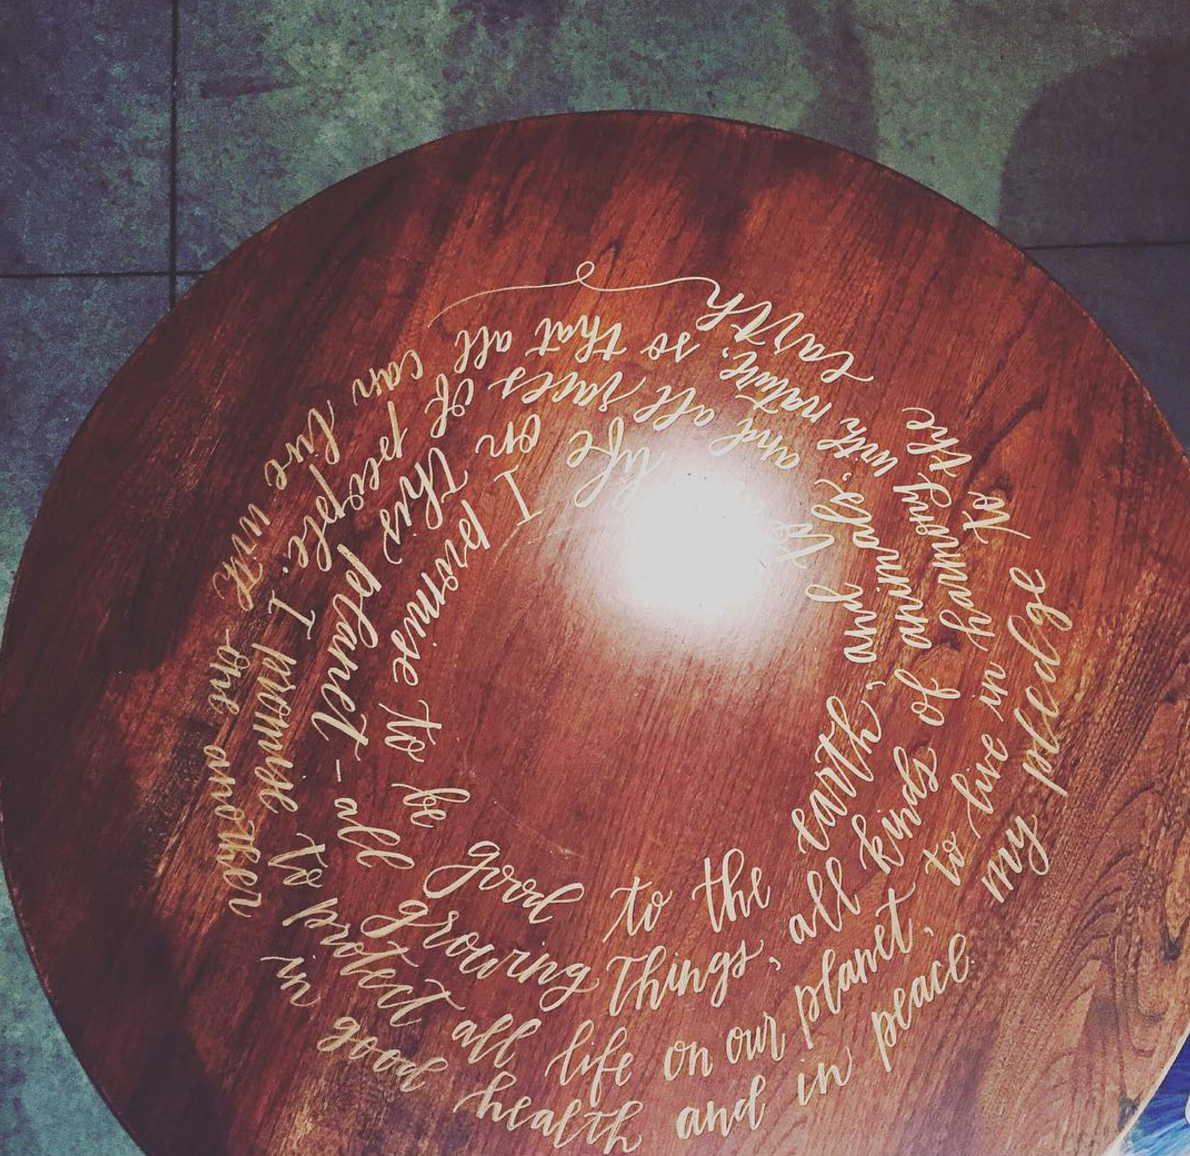 my pledge to the earth
I promise to be good to the earth, and to life on this planet - all growing things, all kinds of animals, and all races of people. I promise to protect all life on our planet, to live in harmony with nature, so that all can live with one another in good health and in peace.